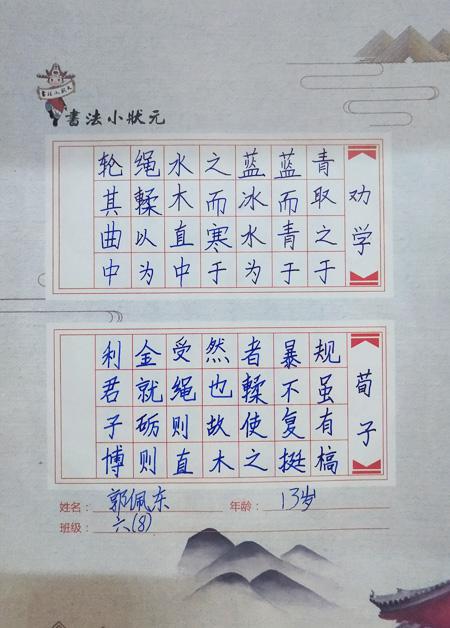 書法小狀元
劝学
青取之于
蓝而青于
蓝冰水为
之而寒于
水木直中
绳輮以为
轮其曲中
荀子
规虽有槁
暴不复挺
者輮使之
然也故木
受绳则直
金就砺则
利君子博
姓名：郭佩东 年龄：13岁
班级：六(8)